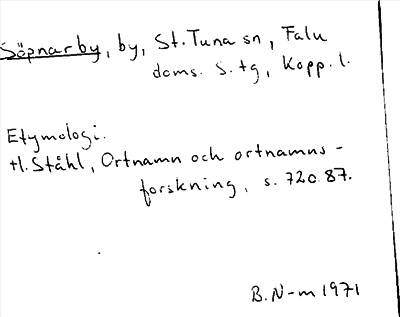 Söpnarby, by, St. Tuna sn, Falu
doms. s. tg, Kopp. l.
Etymologi.
H. Ståhl, Ortnamn och ortnamns-
forskning, s. 72 o. 87.
B. N-m 1971